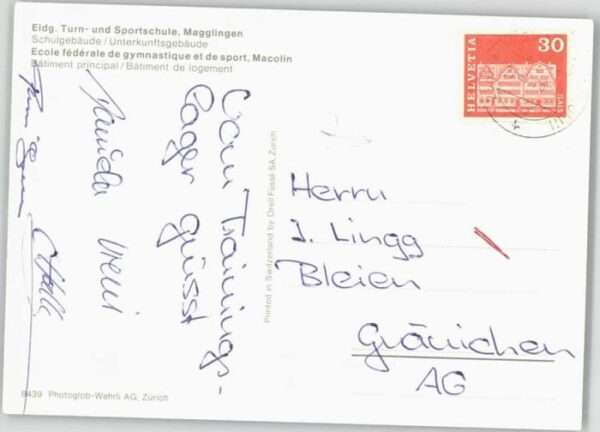 Eidg. Turn- und Sportschule, Magglingen
Schulgebäude / Unterkunftsgebäude
Ecole fédérale de gymnastique et de sport, Macolin
Bâtiment principal / Bâtiment de logement
Vom Trainings-
lager grüsst
Printed in Switzerland by Orell Füssli SA, Zürich
HELVETIA
30
Herrn
J. Lingg
Bleien
Gränichen
AG
9439 Photoglob-Wehrli AG, Zürich